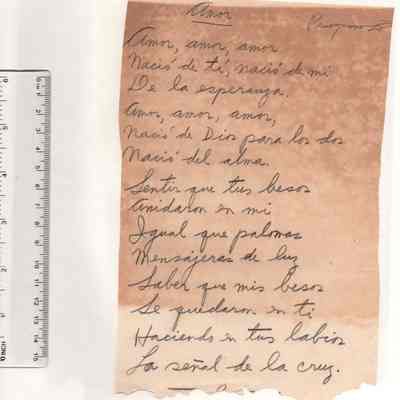 Amor
Amor, amor, amor
Nació de ti, nació de mi
De la esperanza.
Amor, amor, amor,
Nació de Dios para los dos
Nació del alma.
Sentir que tus besos
Anidaron en mi
Igual que palomas
Mensajeras de luz
Saber que mis besos
Se quedaron en ti
Haciendo en tus labios
La señal de la cruz.